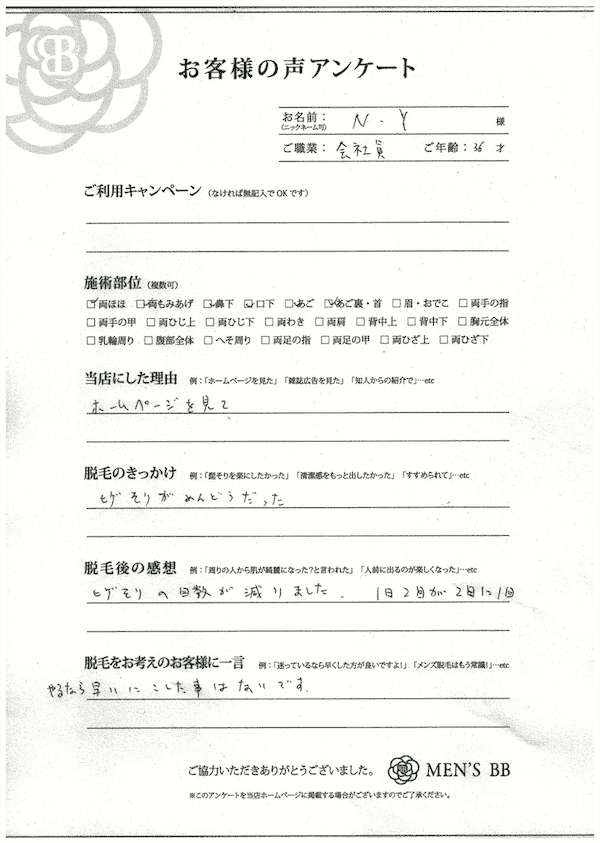 お客様の声アンケート
お名前: N・Y 様
(ニックネーム可)
ご職業: 会社員 ご年齢: 36 才
ご利用キャンペーン (なければ無記入でOKです)
施術部位 (複数可)
☑両ほほ ☑両もみあげ ☑鼻下 ☑口下 ☑あご ☑あご裏・首 □眉・おでこ □両手の指
□両手の甲 □両ひじ上 □両ひじ下 □両わき □両肩 □背中上 □背中下 □胸元全体
□乳輪周り □腹部全体 □へそ周り □両足の指 □両足の甲 □両ひざ上 □両ひざ下
当店にした理由 例:「ホームページを見た」「雑誌広告を見た」「知人からの紹介で」…etc
ホームページを見て
脱毛のきっかけ 例:「髭そりを楽にしたかった」「清潔感をもっと出したかった」「すすめられて」…etc
ヒゲそりがめんどうだった
脱毛後の感想 例:「周りの人から肌が綺麗になった?と言われた」「人前に出るのが楽しくなった」…etc
ヒゲそりの回数が減りました. 1日2回が2日に1回
脱毛をお考えのお客様に一言 例:「迷っているなら早くした方が良いですよ!」「メンズ脱毛はもう常識!」…etc
やるなら早いにこした事はないです.
ご協力いただきありがとうございました。 MEN'S BB
※このアンケートを当店ホームページに掲載する場合がございますのでご了承ください。